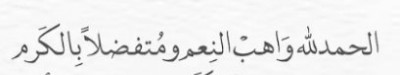 الحمدلله وَاهبْ النِعم ومُتفضلاً بِالكَرم